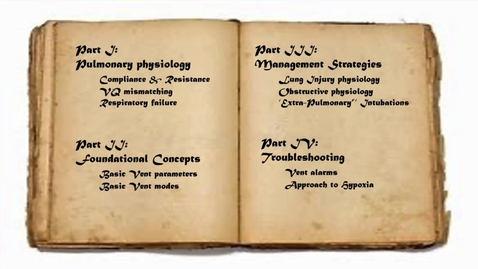 Part I:
Pulmonary physiology
Compliance & Resistance
VQ mismatching
Respiratory failure
Part II:
Foundational Concepts
Basic Vent parameters
Basic Vent modes
Part III:
Management Strategies
Lung Injury physiology
Obstructive physiology
"Extra-Pulmonary" Intubations
Part IV:
Troubleshooting
Vent alarms
Approach to Hypoxia